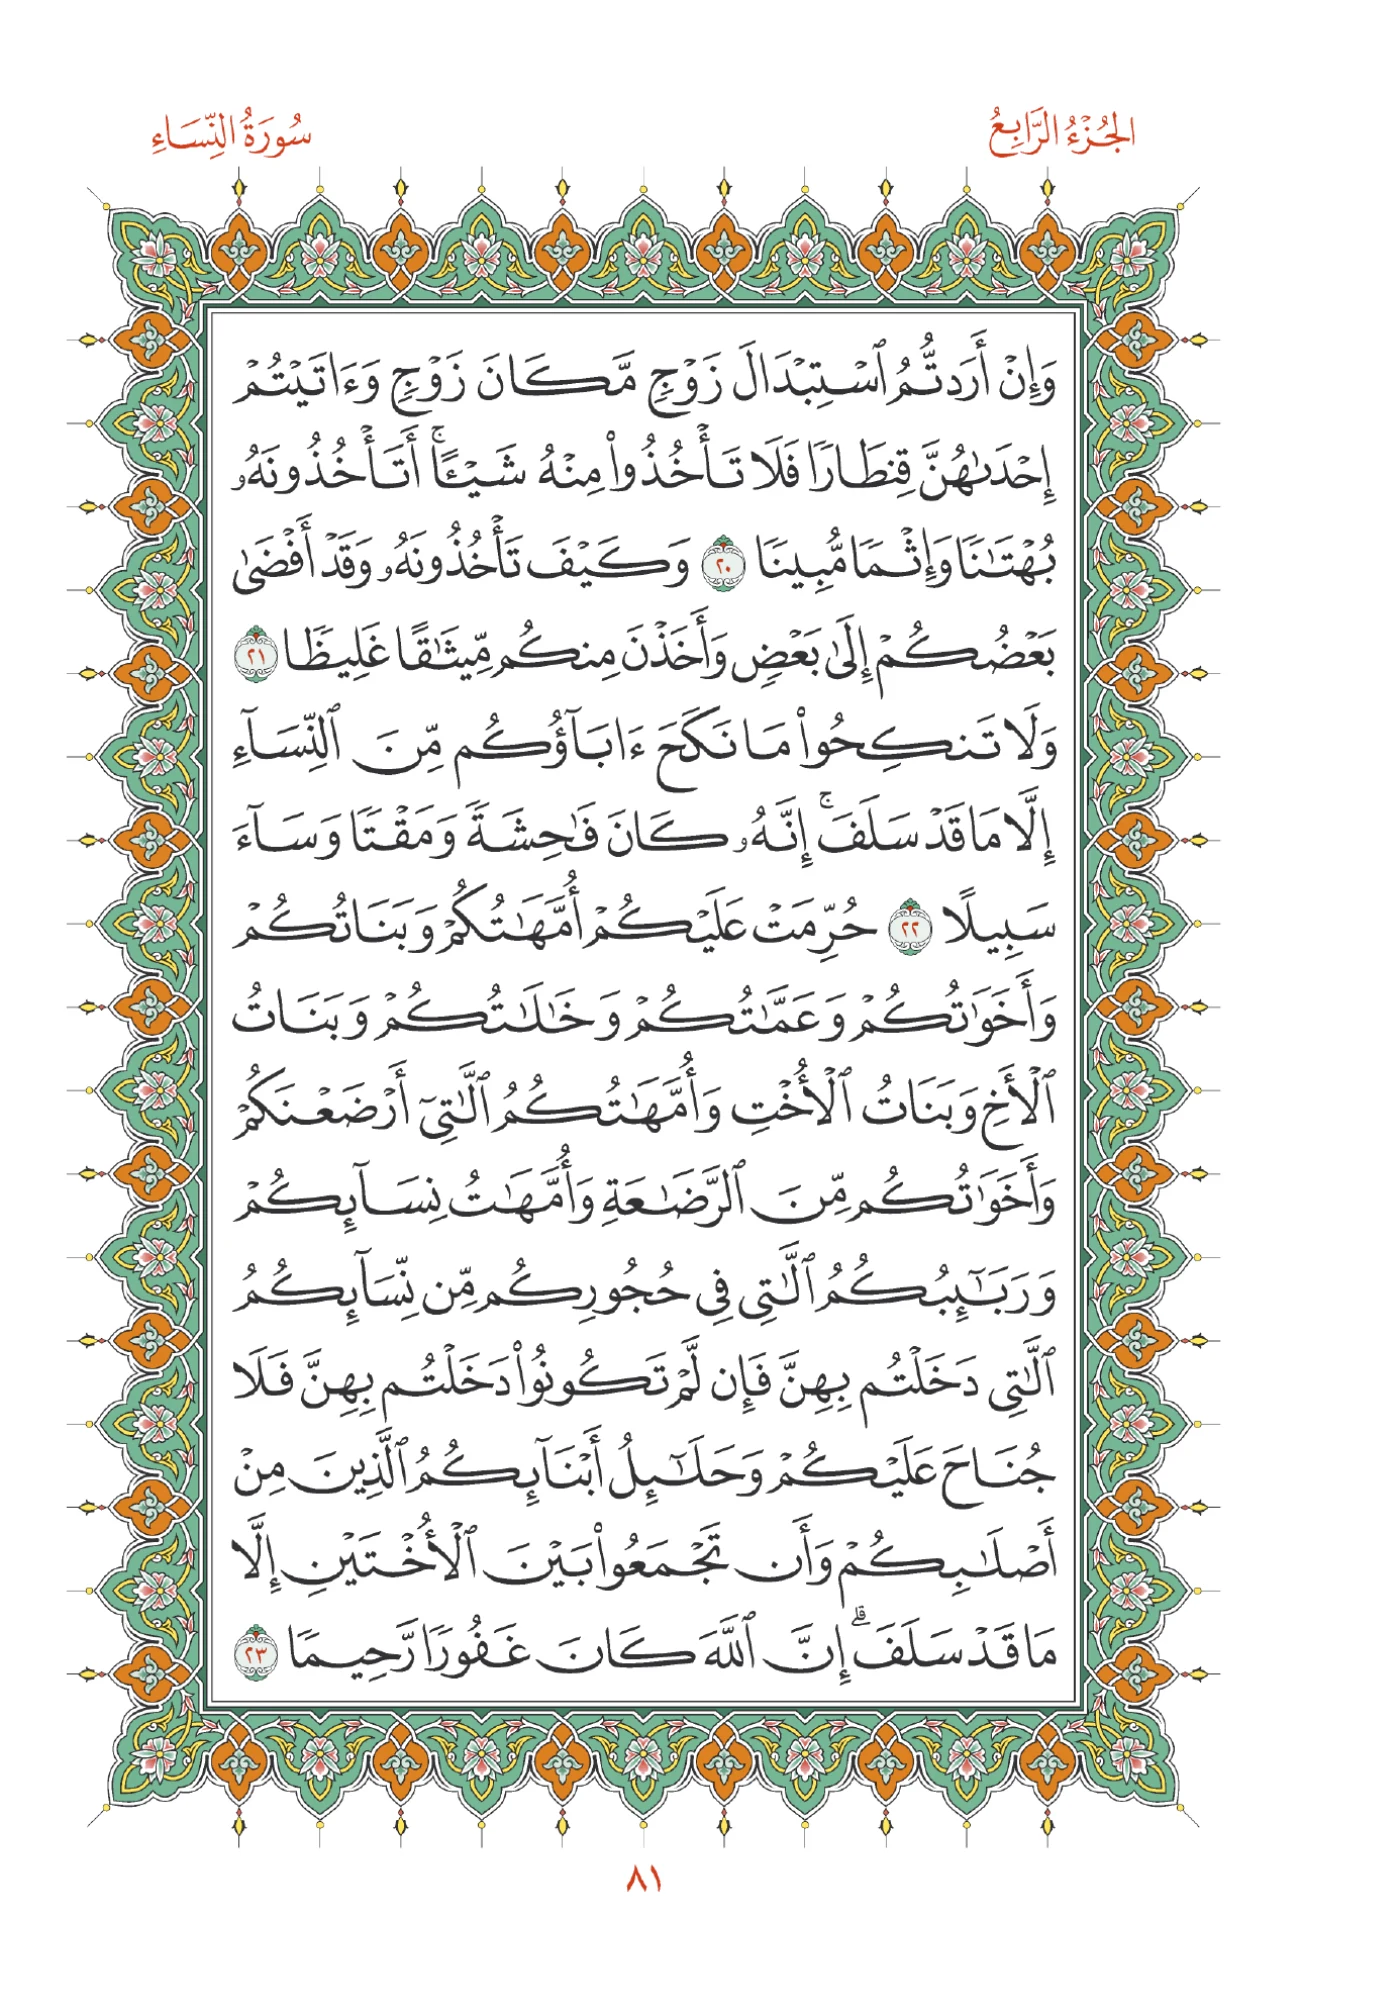 الجُزْءُ الرَّابِعُ
سُورَةُ النِّسَاءِ
وَإِنْ أَرَدتُّمُ ٱسْتِبْدَالَ زَوْجٍ مَّكَانَ زَوْجٍ وَءَاتَيْتُمْ
إِحْدَىٰهُنَّ قِنطَارًا فَلَا تَأْخُذُوا۟ مِنْهُ شَيْـًٔا ۚ أَتَأْخُذُونَهُۥ
بُهْتَـٰنًا وَإِثْمًا مُّبِينًا ٢٠ وَكَيْفَ تَأْخُذُونَهُۥ وَقَدْ أَفْضَىٰ
بَعْضُكُمْ إِلَىٰ بَعْضٍ وَأَخَذْنَ مِنكُم مِّيثَـٰقًا غَلِيظًا ٢١
وَلَا تَنكِحُوا۟ مَا نَكَحَ ءَابَآؤُكُم مِّنَ ٱلنِّسَآءِ
إِلَّا مَا قَدْ سَلَفَ ۚ إِنَّهُۥ كَانَ فَـٰحِشَةً وَمَقْتًا وَسَآءَ
سَبِيلًا ٢٢ حُرِّمَتْ عَلَيْكُمْ أُمَّهَـٰتُكُمْ وَبَنَاتُكُمْ
وَأَخَوَٰتُكُمْ وَعَمَّـٰتُكُمْ وَخَـٰلَـٰتُكُمْ وَبَنَاتُ
ٱلْأَخِ وَبَنَاتُ ٱلْأُخْتِ وَأُمَّهَـٰتُكُمُ ٱلَّـٰتِىٓ أَرْضَعْنَكُمْ
وَأَخَوَٰتُكُم مِّنَ ٱلرَّضَـٰعَةِ وَأُمَّهَـٰتُ نِسَآئِكُمْ
وَرَبَـٰٓئِبُكُمُ ٱلَّـٰتِى فِى حُجُورِكُم مِّن نِّسَآئِكُمُ
ٱلَّـٰتِى دَخَلْتُم بِهِنَّ فَإِن لَّمْ تَكُونُوا۟ دَخَلْتُم بِهِنَّ فَلَا
جُنَاحَ عَلَيْكُمْ وَحَلَـٰٓئِلُ أَبْنَآئِكُمُ ٱلَّذِينَ مِنْ
أَصْلَـٰبِكُمْ وَأَن تَجْمَعُوا۟ بَيْنَ ٱلْأُخْتَيْنِ إِلَّا
مَا قَدْ سَلَفَ ۗ إِنَّ ٱللَّهَ كَانَ غَفُورًا رَّحِيمًا ٢٣
٨١